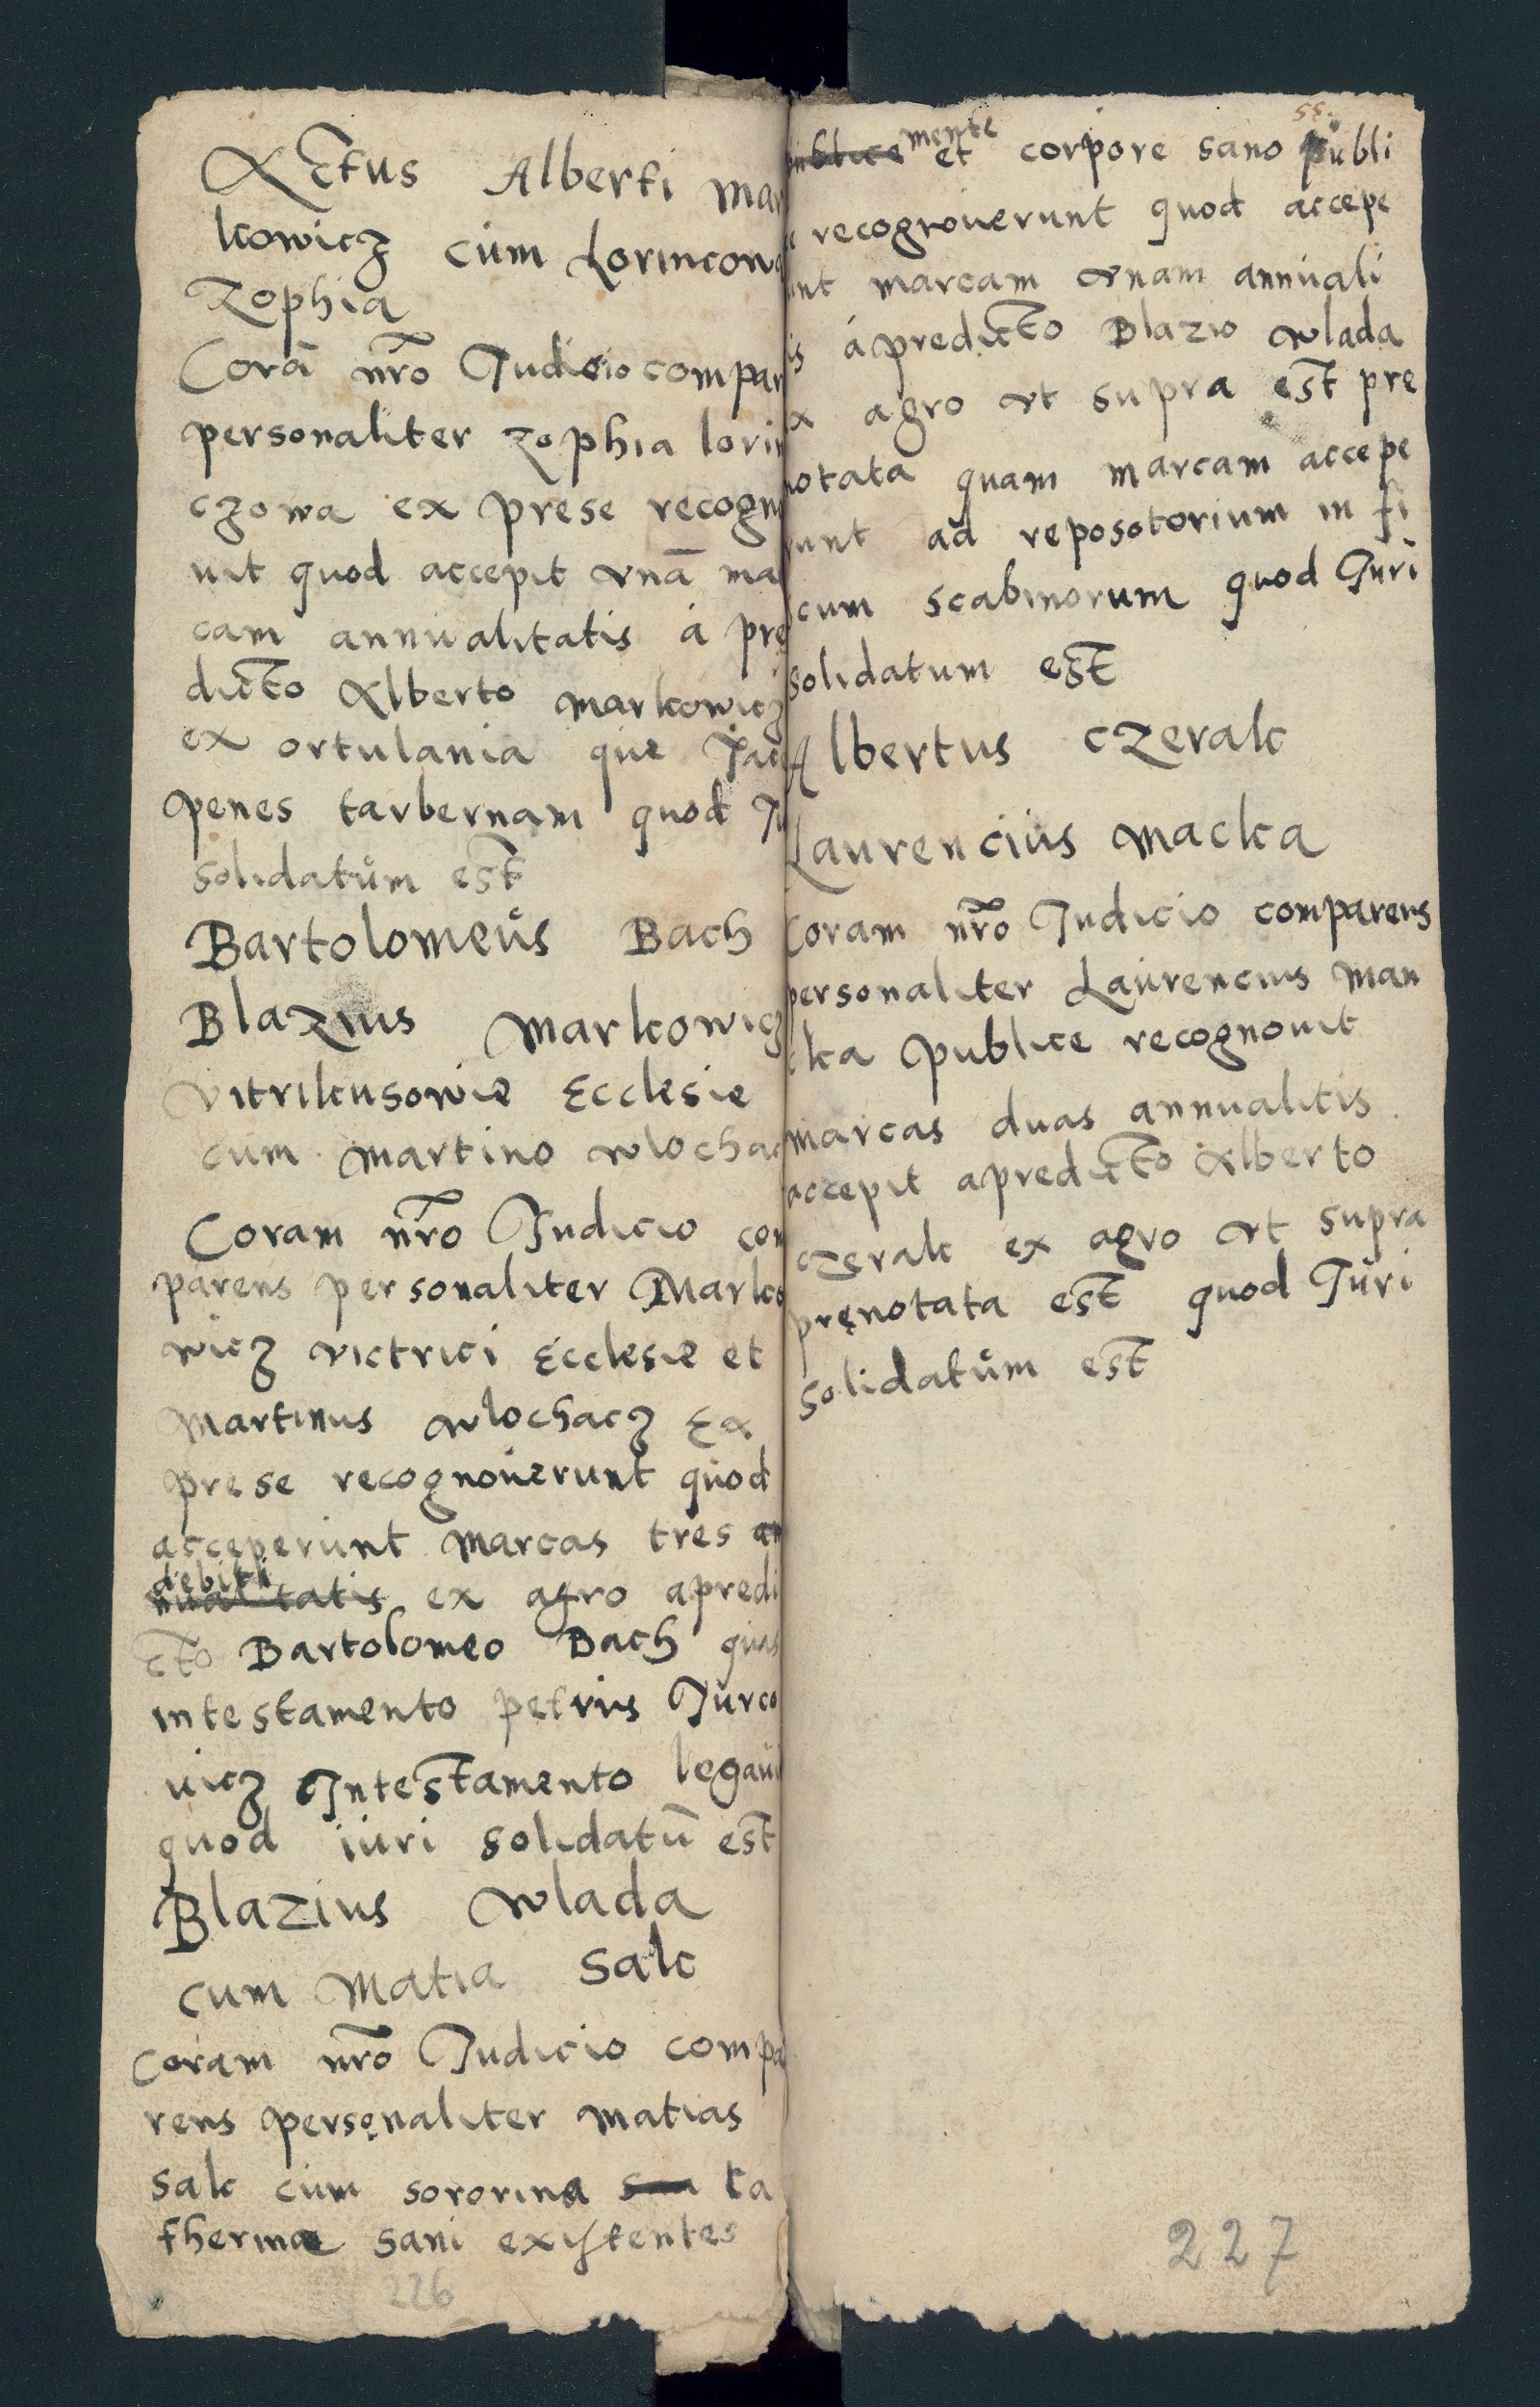 Actus Alberti Mar
kowicz cum Lorincow
Zophia
Corā nr̄o Judicio compar
personaliter zophia lorin
czowa ex prese recogno
uit quod accepit vnā ma
cam annualitatis a pre
dicto Alberto Markowicz
ex ortulania que Jac
penes tarbernam quod Ju
solidatum est
Bartolomeus Bach
Blazius Markowicz
vitrikusowie Ecclesie
cum Martino wlochac
Coram nr̄o Judicio com
parens personaliter Marko
wicz victrici Ecclesie et
Martinus wlochacz Ex
prese recognouerunt quod
acceperunt Marcas tres an
debiti
nualitatis ex agro apredi
cto Bartolomeo Bach quas
intestamento petrus Jurco
uicz Intestamento legaui
quod iuri solidatū est
Blazius wlada
cum Matia Salc
Coram nr̄o Judicio compa
rens personaliter Matias
Salc cum sororina sua ka
therinae sani existentes
226
55.
mente
publice et corpore sano publi
e recognouerunt quod accepe
unt marcam vnam annuali
is apredicto Blazio wlada
ex agro vt supra est pre
notata quam marcam accepe
runt ad reposotorium in fi
scum scabinorum quod Juri
solidatum est
Albertus Czerak
Laurencius Macka
Coram nr̄o Judicio comparens
personaliter Laurencius Man
cka publice recognouit
marcas duas annualitis
accepit apredicto Alberto
czerak ex agro vt supra
pręnotata est quod Juri
solidatum est
227